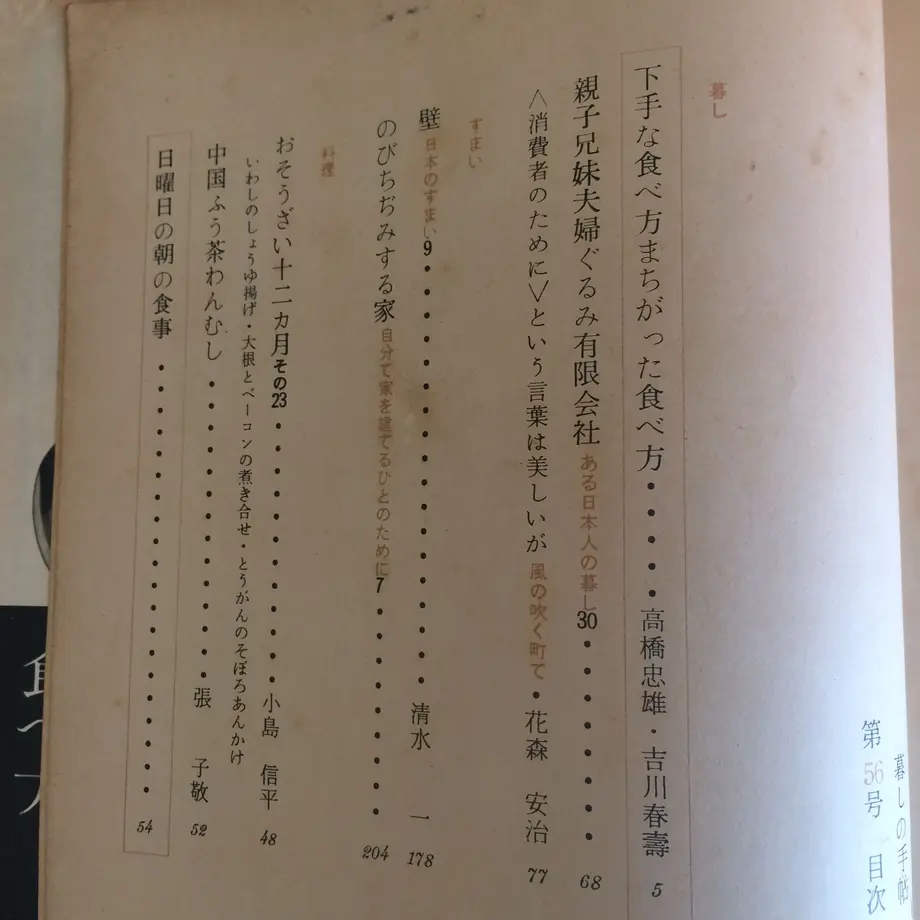 暮しの手帖
第56号 目次
暮し
下手な食べ方まちがった食べ方・・・・高橋忠雄・吉川春壽 5
親子兄妹夫婦ぐるみ有限会社 ある日本人の暮し30・・・・・・・・ 68
〈消費者のために〉という言葉は美しいが 風の吹く町で・花森 安治 77
すまい
壁 日本のすまい9・・・・・・・・・・・・・・・・・・清水 一 178
のびちぢみする家 自分で家を建てるひとのために7・・・・・・・・・ 204
料理
おそうざい十二カ月その23・・・・・・・・・・・・小島 信平 48
いわしのしょうゆ揚げ・大根とベーコンの煮き合せ・とうがんのそぼろあんかけ
中国ふう茶わんむし・・・・・・・・・・・・・・張 子敬 52
日曜日の朝の食事・・・・・・・・・・・・・・・・・・・・ 54